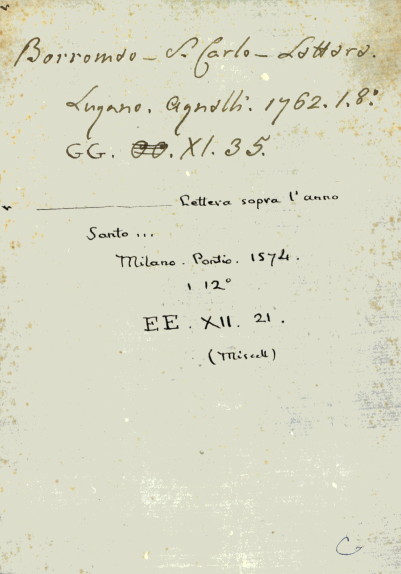 Borromeo - S. Carlo - Lettere.
Lugano. Agnelli. 1762. 1. 8º
GG. XI. 35.
Lettera sopra l'anno
Santo ...
Milano. Pontio. 1574.
1 12º
EE. XII. 21.
(Miscell)